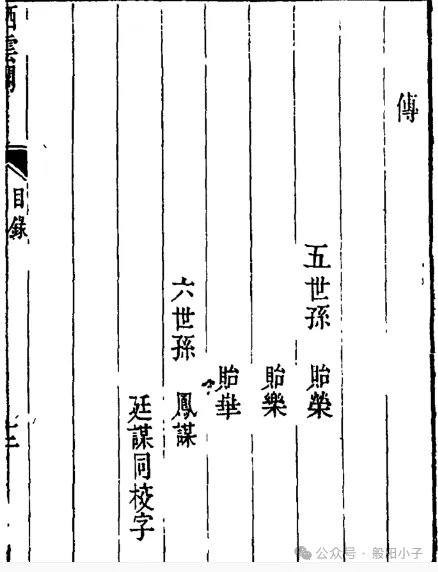 傳
五世孫 貽榮
貽樂
貽華
六世孫 鳳謀
廷謀同校字
栖雲閣
目錄
公众号 · 般阳小子